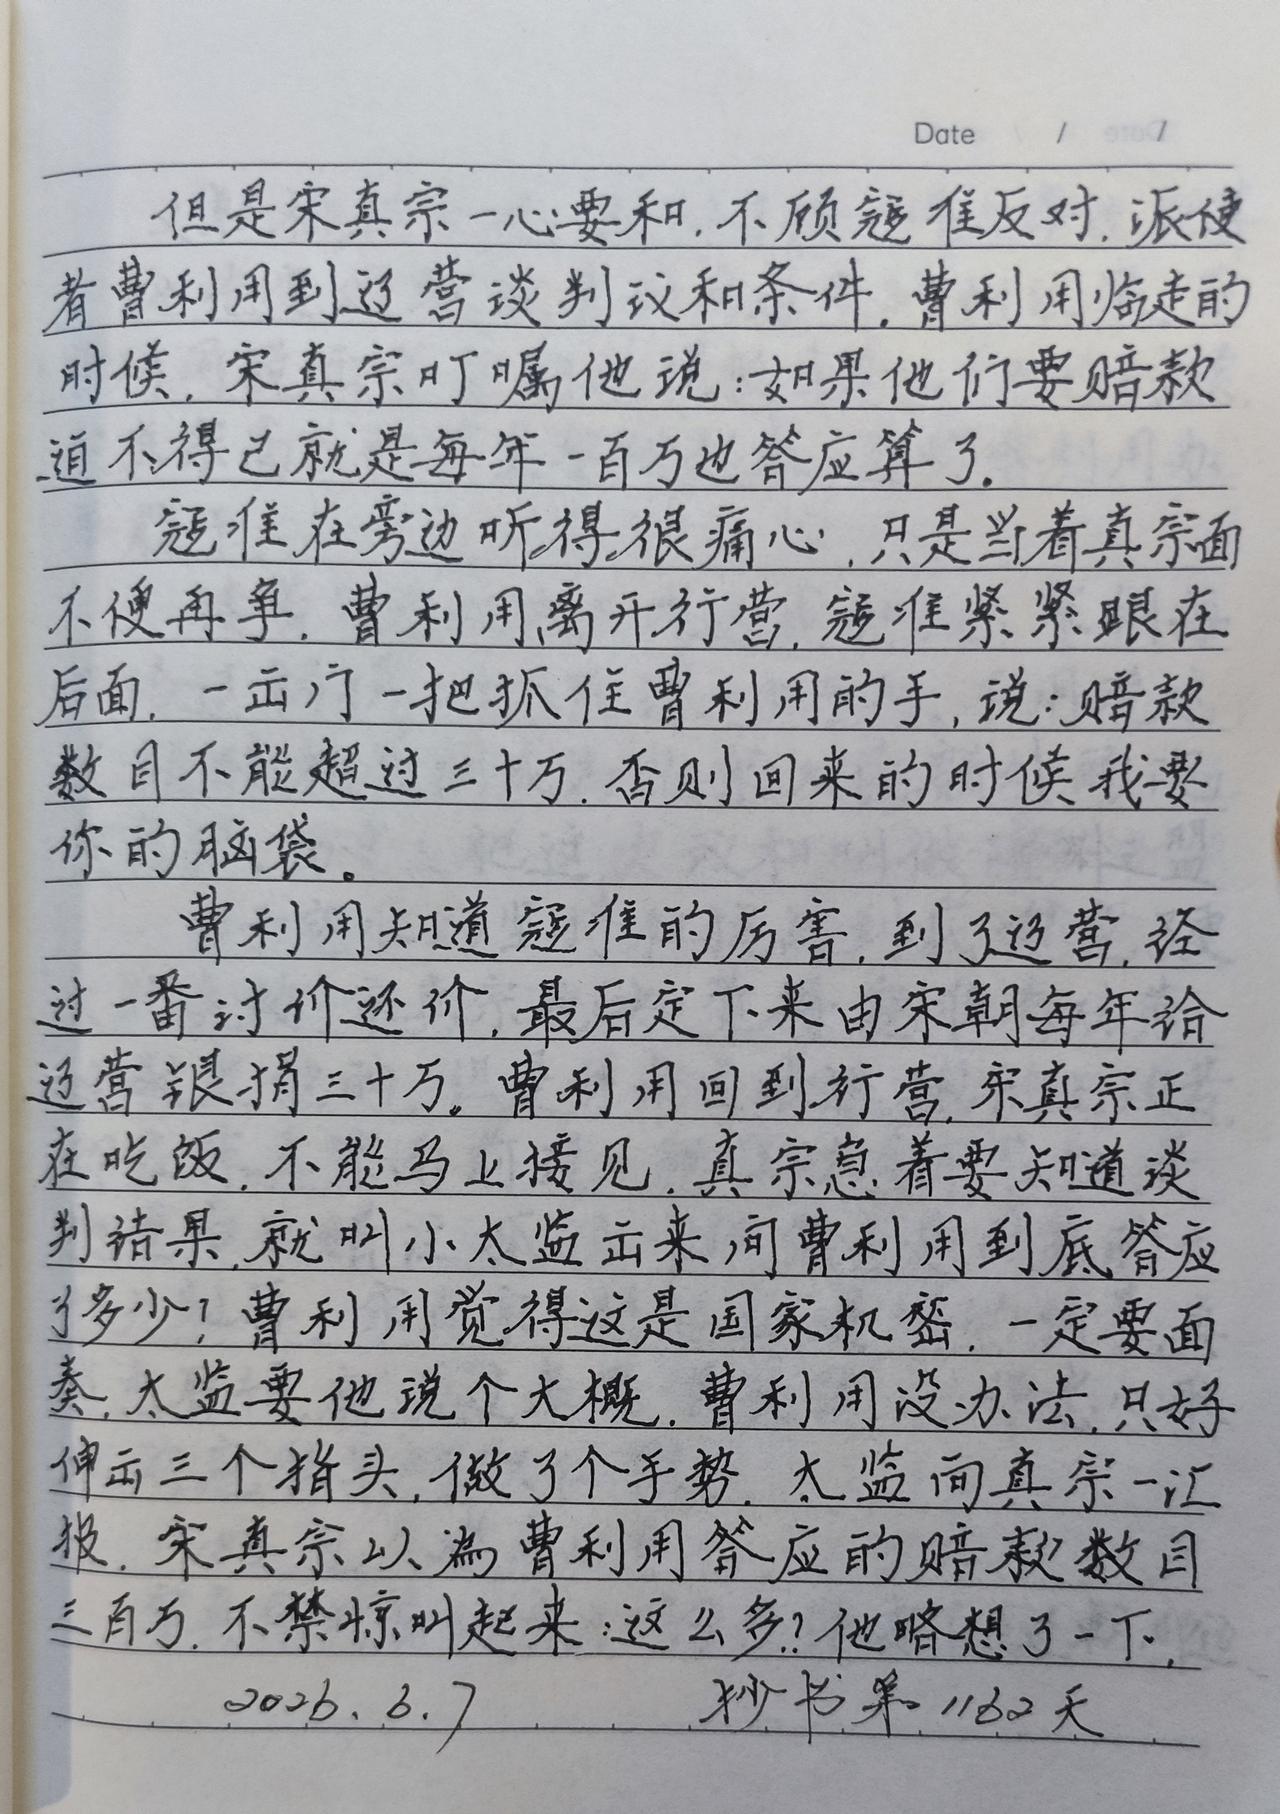 Date / /
但是宋真宗一心要和,不顾寇准反对,派使
者曹利用到辽营谈判议和条件,曹利用临走的
时候,宋真宗叮嘱他说:如果他们要赔款
迫不得已就是每年一百万也答应算了。
寇准在旁边听得很痛心,只是当着真宗面
不便再争,曹利用离开行营,寇准紧紧跟在
后面,一出门一把抓住曹利用的手,说:赔款
数目不能超过三十万,否则回来的时候我要
你的脑袋。
曹利用知道寇准的厉害,到了辽营,经
过一番讨价还价,最后定下来由宋朝每年给
辽营银捐三十万。曹利用回到行营,宋真宗正
在吃饭,不能马上接见,真宗急着要知道谈
判结果,就叫小太监出来问曹利用到底答应
了多少?曹利用觉得这是国家机密,一定要面
奏,太监要他说个大概,曹利用没办法,只好
伸出三个指头,做了个手势,太监向真宗一汇
报,宋真宗以為曹利用答应的赔款数目
三百万,不禁惊叫起来:这么多?他略想了一下,
2026.6.7 抄书第1162天